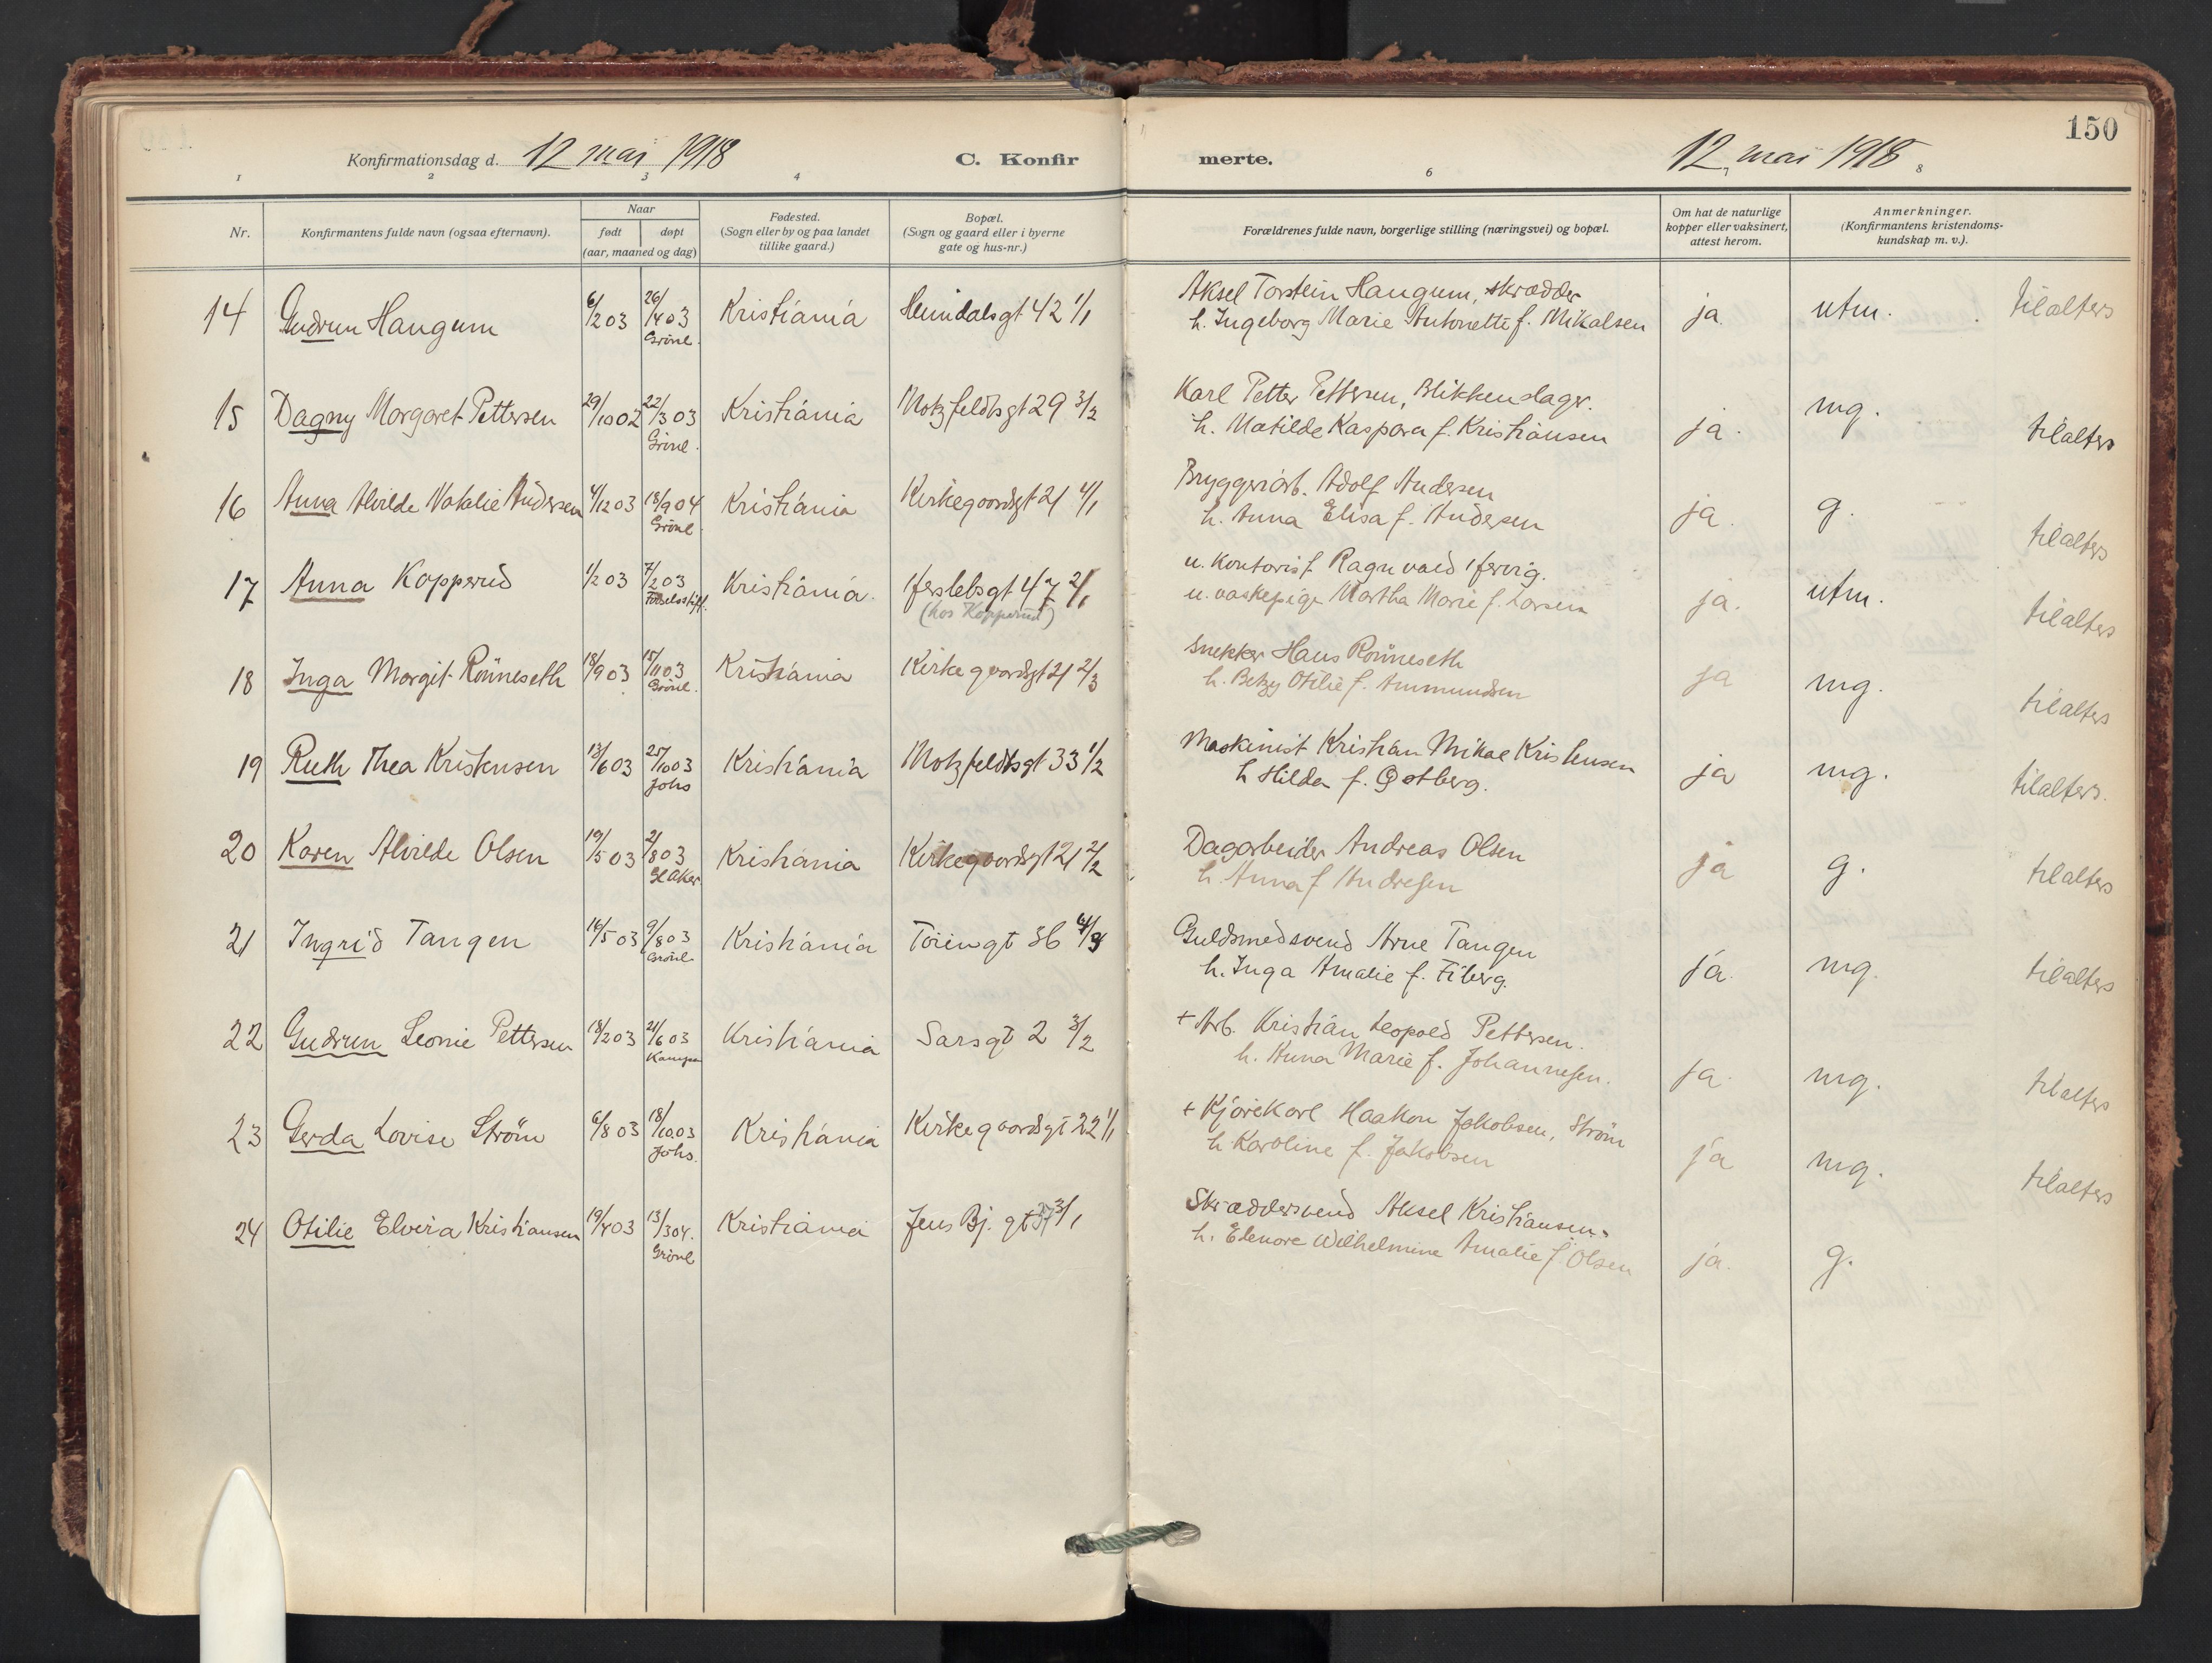 150
Konfirmationsdag d. 12 mai 1918 C. Konfirmerte. 12 mai 1918
1 2 3 4 6 7 8
Nr. Konfirmantens fulde navn (ogsaa efternavn). Naar født døpt (aar, maaned og dag) Fødested. (Sogn eller by og paa landet tillike gaard.) Bopæl. (Sogn og gaard eller i byerne gate og hus-nr.) Forældrenes fulde navn, borgerlige stilling (næringsvei) og bopæl. Om hat de naturlige kopper eller vaksinert, attest herom. Anmerkninger. (Konfirmantens kristendomskundskap m. v.).
14 Gudrun Haugum 6/2 03 26/4 03 Grönl. Kristiania Heimdalsgt 42 1/1 Aksel Torstein Haugum, skrædder ja. utm. tilalters
h. Ingeborg Marie Antonette f. Mikalsen
15 Dagny Margaret Pettersen 29/10 02 22/3 03 Grönl. Kristiania Motzfeldtsgt 29 3/2 Karl Petter Pettersen, Blikkenslager. ja. mg. tilalters
h. Matilde Kaspara f. Kristiansen
16 Anna Alvilde Natalie Andersen 4/12 03 18/9 04 Grönl. Kristiania Kirkegaardsgt 21 4/1 Bryggeriarb. Adolf Andersen ja. g. tilalters
h. Anna Elisa f. Andersen
17 Anna Kopperud 1/2 03 7/2 03 Födselsstift. Kristiania. 47 2/1 (hos Kopperud) u. Kontorist Ragnvald ja. utm. tilalters
u. vaskepige Martha Marie f. Larsen
18 Inga Margit Rönneseth 18/9 03 15/11 03 Grönl. Kristiania Kirkegaardsgt 21 2/3 Snekker Hans Rönneseth ja mg. tilalters
h. Betzy Otilie f. Ammundsen
19 Ruth Thea Kristensen 13/6 03 25/10 03 Johs Kristiania Motzfeldtsgt 33 1/2 Maskinist Kristian Mikal Kristensen ja mg. tilalters.
h Hilda f. Östberg.
20 Karen Alvilde Olsen 19/5 03 2/8 03 Gl Aker. Kristiania Kirkegaardsgt 21 2/2 Dagarbeider Andreas Olsen ja g. tilalters
h. Anna f Andresen
21 Ingrid Tangen 16/5 03 9/8 03 Grönl. Kristiania Töiengt 36 Guldsmedsvend Arne Tangen ja. mg. tilalters
h. Inga Amalie f. Fiberg.
22 Gudrun Leonie Pettersen 18/2 03 21/6 03 Kampen Kristiania Sarsgt 2 3/2 + Arb. Kristian Leopold Pettersen. ja. mg. tilalters
h. Anna Marie f. Johannesen.
23 Gerda Lovise Ström 6/8 03 18/10 03 Johs. Kristiania Kirkegaardsgt 22 1/1 + Kjörekarl Haakon Jakobsen, Ström ja mg. tilalters
h Karoline f. Jakobsen
24 Otilie Elvira Kristiansen 19/4 03 13/3 04. Grönl Kristiania Jens Bj. gt 3/1 Skræddersvend Aksel Kristiansen. ja. g.
h. Elenore Wilhelmine Amalie f. Olsen